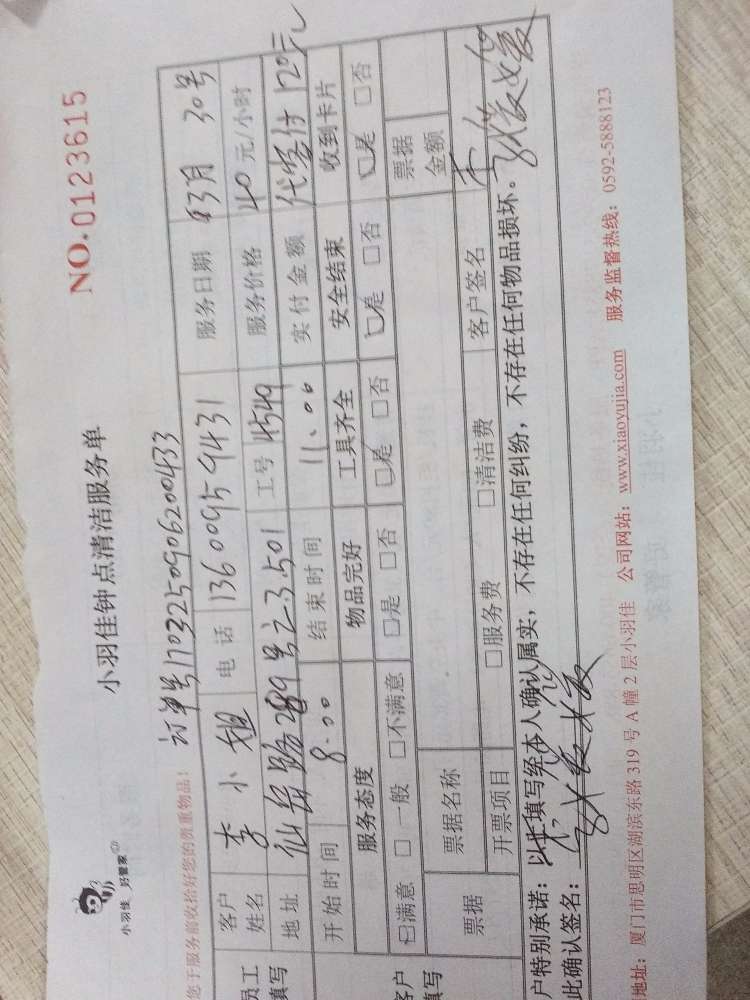 小羽佳 好管家
小羽佳钟点清洁服务单
NO.0123615
您于服务前收拾好您的贵重物品!
订单号1703250906200433
员工填写
客户姓名 李小姐 电话 13600959431 服务日期 3月30号
地址 仙岳路289号之3.501 工号 4549 服务价格 40元/小时
开始时间 8.00 结束时间 11.00 实付金额 代签付120元
客户填写
服务态度 物品完好 工具齐全 安全结束 收到卡片
☑满意 □一般 □不满意 □是 □否 ☑是 □否 ☑是 □否 ☑是 □否
票据 票据名称 票据金额
开票项目 □服务费 □清洁费 客户签名
户特别承诺:以上填写经本人确认属实,不存在任何纠纷,不存在任何物品损坏。
此确认签名:
地址:厦门市思明区湖滨东路319号A幢2层小羽佳 公司网站:www.xiaoyujia.com 服务监督热线:0592-5888123